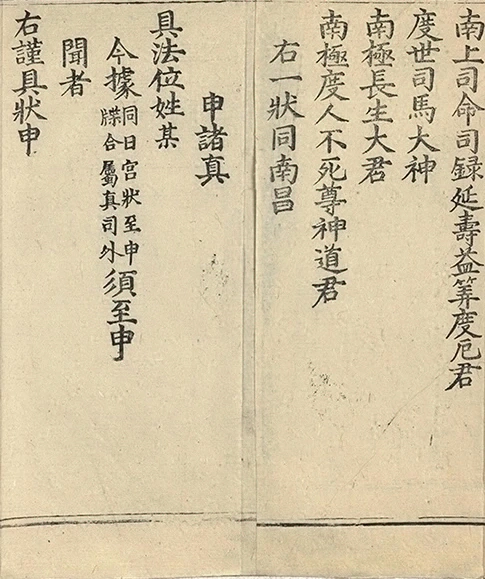 南上司命司録延壽益筭度厄君
度世司馬大神
南極長生大君
南極度人不死尊神道君
右一狀同南昌
申諸真
具法位姓某
今據同日宫狀至申牒合屬真司外須至申
聞者
右謹具狀申